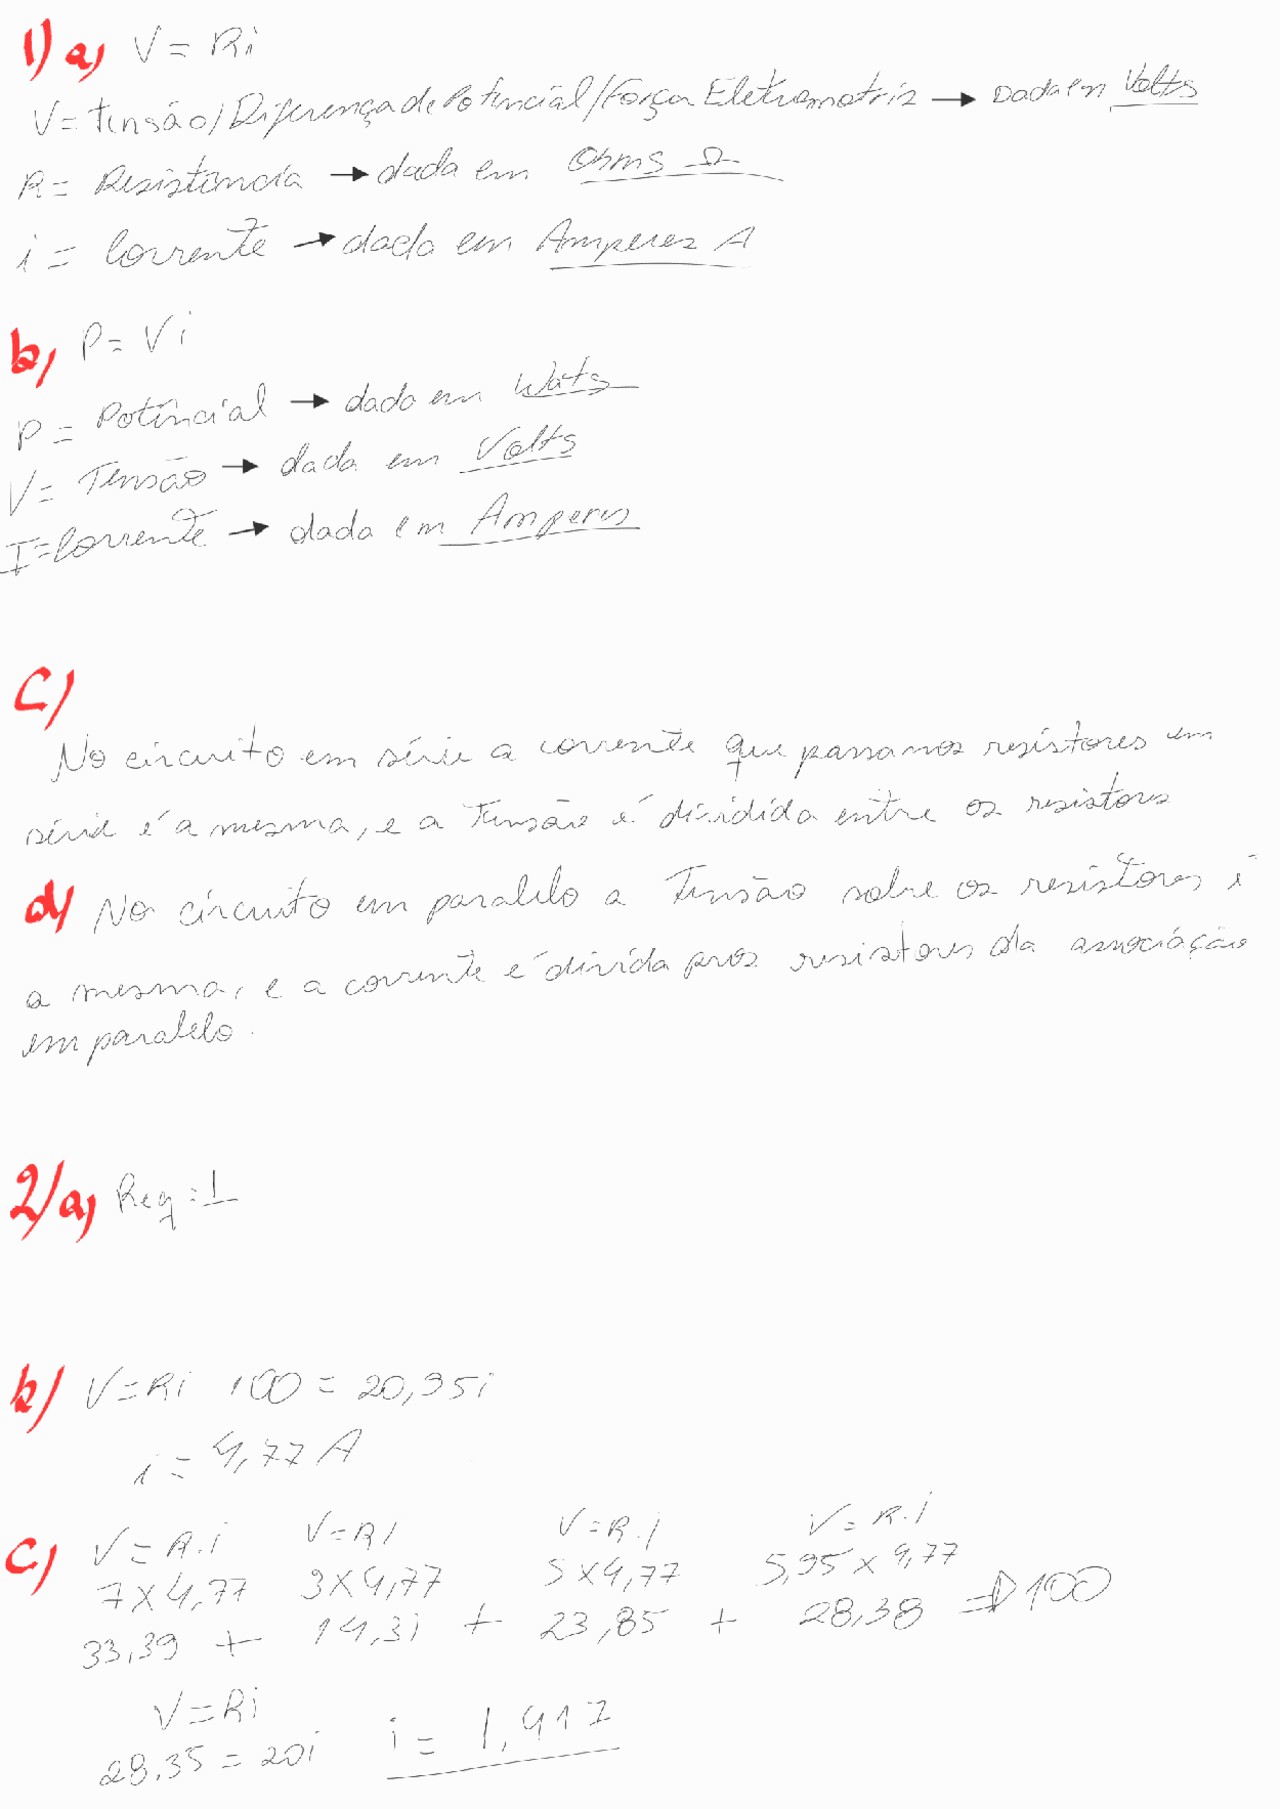 1) a) V = Ri
V = tensão/Diferença de Potencial/Força Eletromotriz → Dada em Volts
R = Resistência → dada em Ohms Ω
i = Corrente → dada em Amperes A
b) P = Vi
P = Potêncial → dado em Wats
V = Tensão → dada em Volts
I = Corrente → dada em Amperes
C)
No circuito em série a corrente que passa nos resistores em
série é a mesma, e a Tensão é dividida entre os resistores
d) No circuito em paralelo a Tensão sobre os resistores é
a mesma, e a corrente é divida pros resistores da associação
em paralelo.
2) a) Req = 1
b) V = Ri 100 = 20,95i
i = 4,77 A
C) V = R.i V = Ri V = R.i V = R.i
7 x 4,77 3 x 4,77 5 x 4,77 5,95 x 4,77
33,39 + 14,31 + 23,85 + 28,38 ⇒ 100
V = Ri
28,35 = 20i i = 1,417